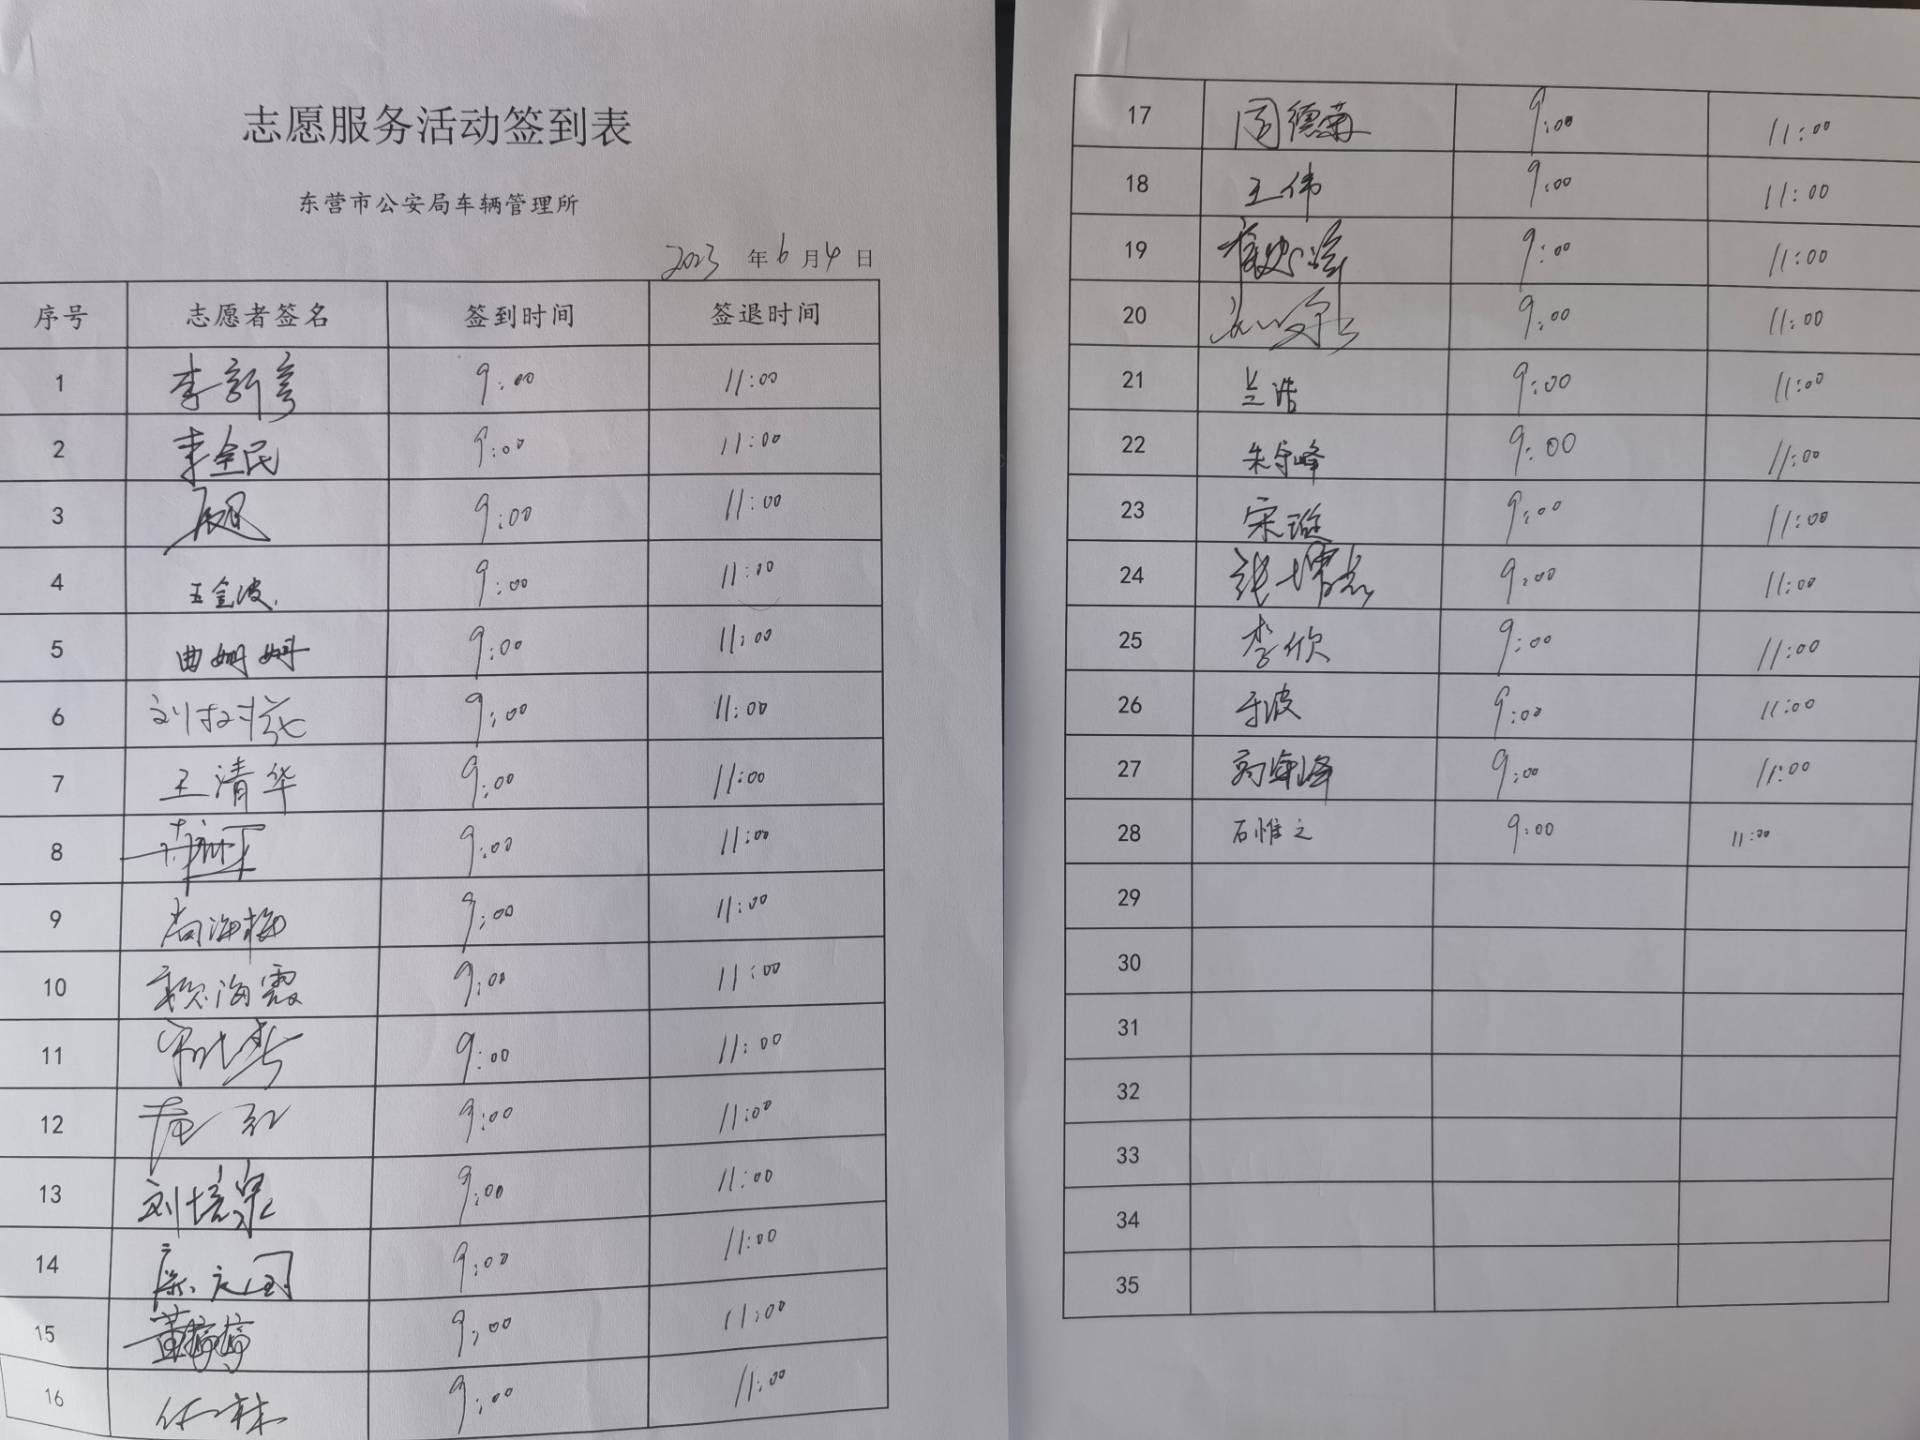 志愿服务活动签到表
东营市公安局车辆管理所
2023 年 6 月 4 日
序号 志愿者签名 签到时间 签退时间
1 李新 9:00 11:00
2 李全民 9:00 11:00
3 9:00 11:00
4 王金波 9:00 11:00
5 曲姗姗 9:00 11:00
6 刘 9:00 11:00
7 王清华 9:00 11:00
8 9:00 11:00
9 尚海梅 9:00 11:00
10 海霞 9:00 11:00
11 9:00 11:00
12 红 9:00 11:00
13 刘培泉 9:00 11:00
14 9:00 11:00
15 黄婷婷 9:00 11:00
16 任林林 9:00 11:00
17 周德菊 9:00 11:00
18 王伟 9:00 11:00
19 9:00 11:00
20 9:00 11:00
21 兰浩 9:00 11:00
22 朱守峰 9:00 11:00
23 宋璇 9:00 11:00
24 张 9:00 11:00
25 李欣 9:00 11:00
26 于波 9:00 11:00
27 峰 9:00 11:00
28 石惟之 9:00 11:00
29
30
31
32
33
34
35